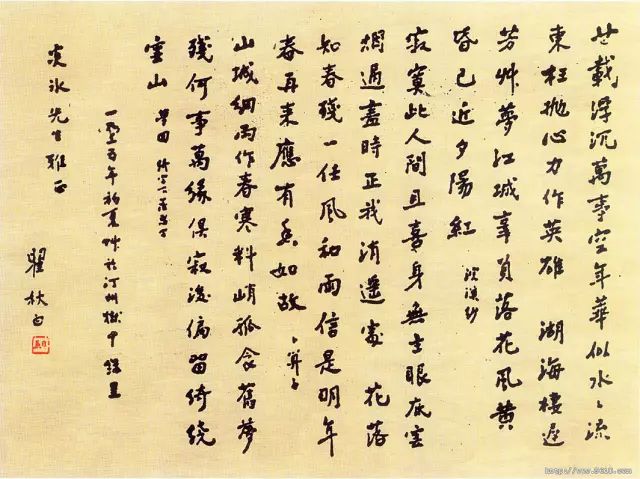 廿載浮沉萬事空年華似水〻流
東枉抛心力作英雄 湖海棲遲
芳艸夢江城辜負落花風黄
昏已近夕陽紅 浣溪紗
寂寞此人間且喜身無主眼底雲
烟過盡時正我逍遥處 花落
知春殘一任風和雨信是明年
春再來應有香如故 卜算子
山城細雨作春寒料峭孤衾舊夢
殘何事萬緣俱寂後偏留綺繞
雲山 夢回
一九三五年初夏 艸於汀州獄中 錄呈
炎冰先生雅正
瞿秋白